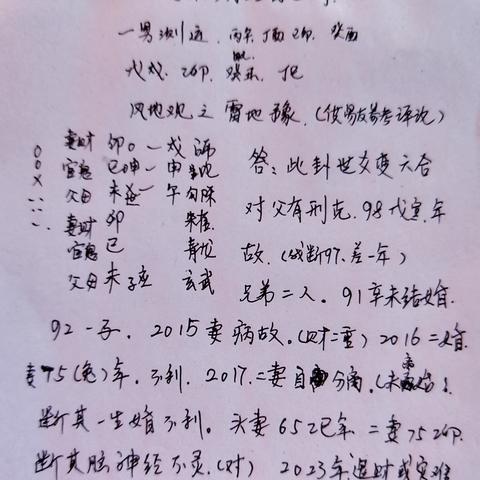 一男测运，丙午 丁酉 己卯 癸酉
戊戌、乙卯、癸亥、丁巳
风地观之雷地豫，(供易友参考评说)
妻财 卯o一戌 师
官鬼 巳 一申
父母 未 一午 勾陈
妻财 卯 朱雀
官鬼 巳 青龙
父母 未 应 玄武
答：此卦世爻变六合
对父有刑克，98戊寅年
故，(我断97，差一年)
兄弟二人，91辛未结婚，
92一子，2015妻病故，(财二重) 2016二婚，
妻75(兔)年，不利，2017，二妻自 分离，(未 )！
断其一生婚不利，头妻65乙巳年 二妻75乙卯
断其脑神经不灵，(对) 2023年退财或灾难